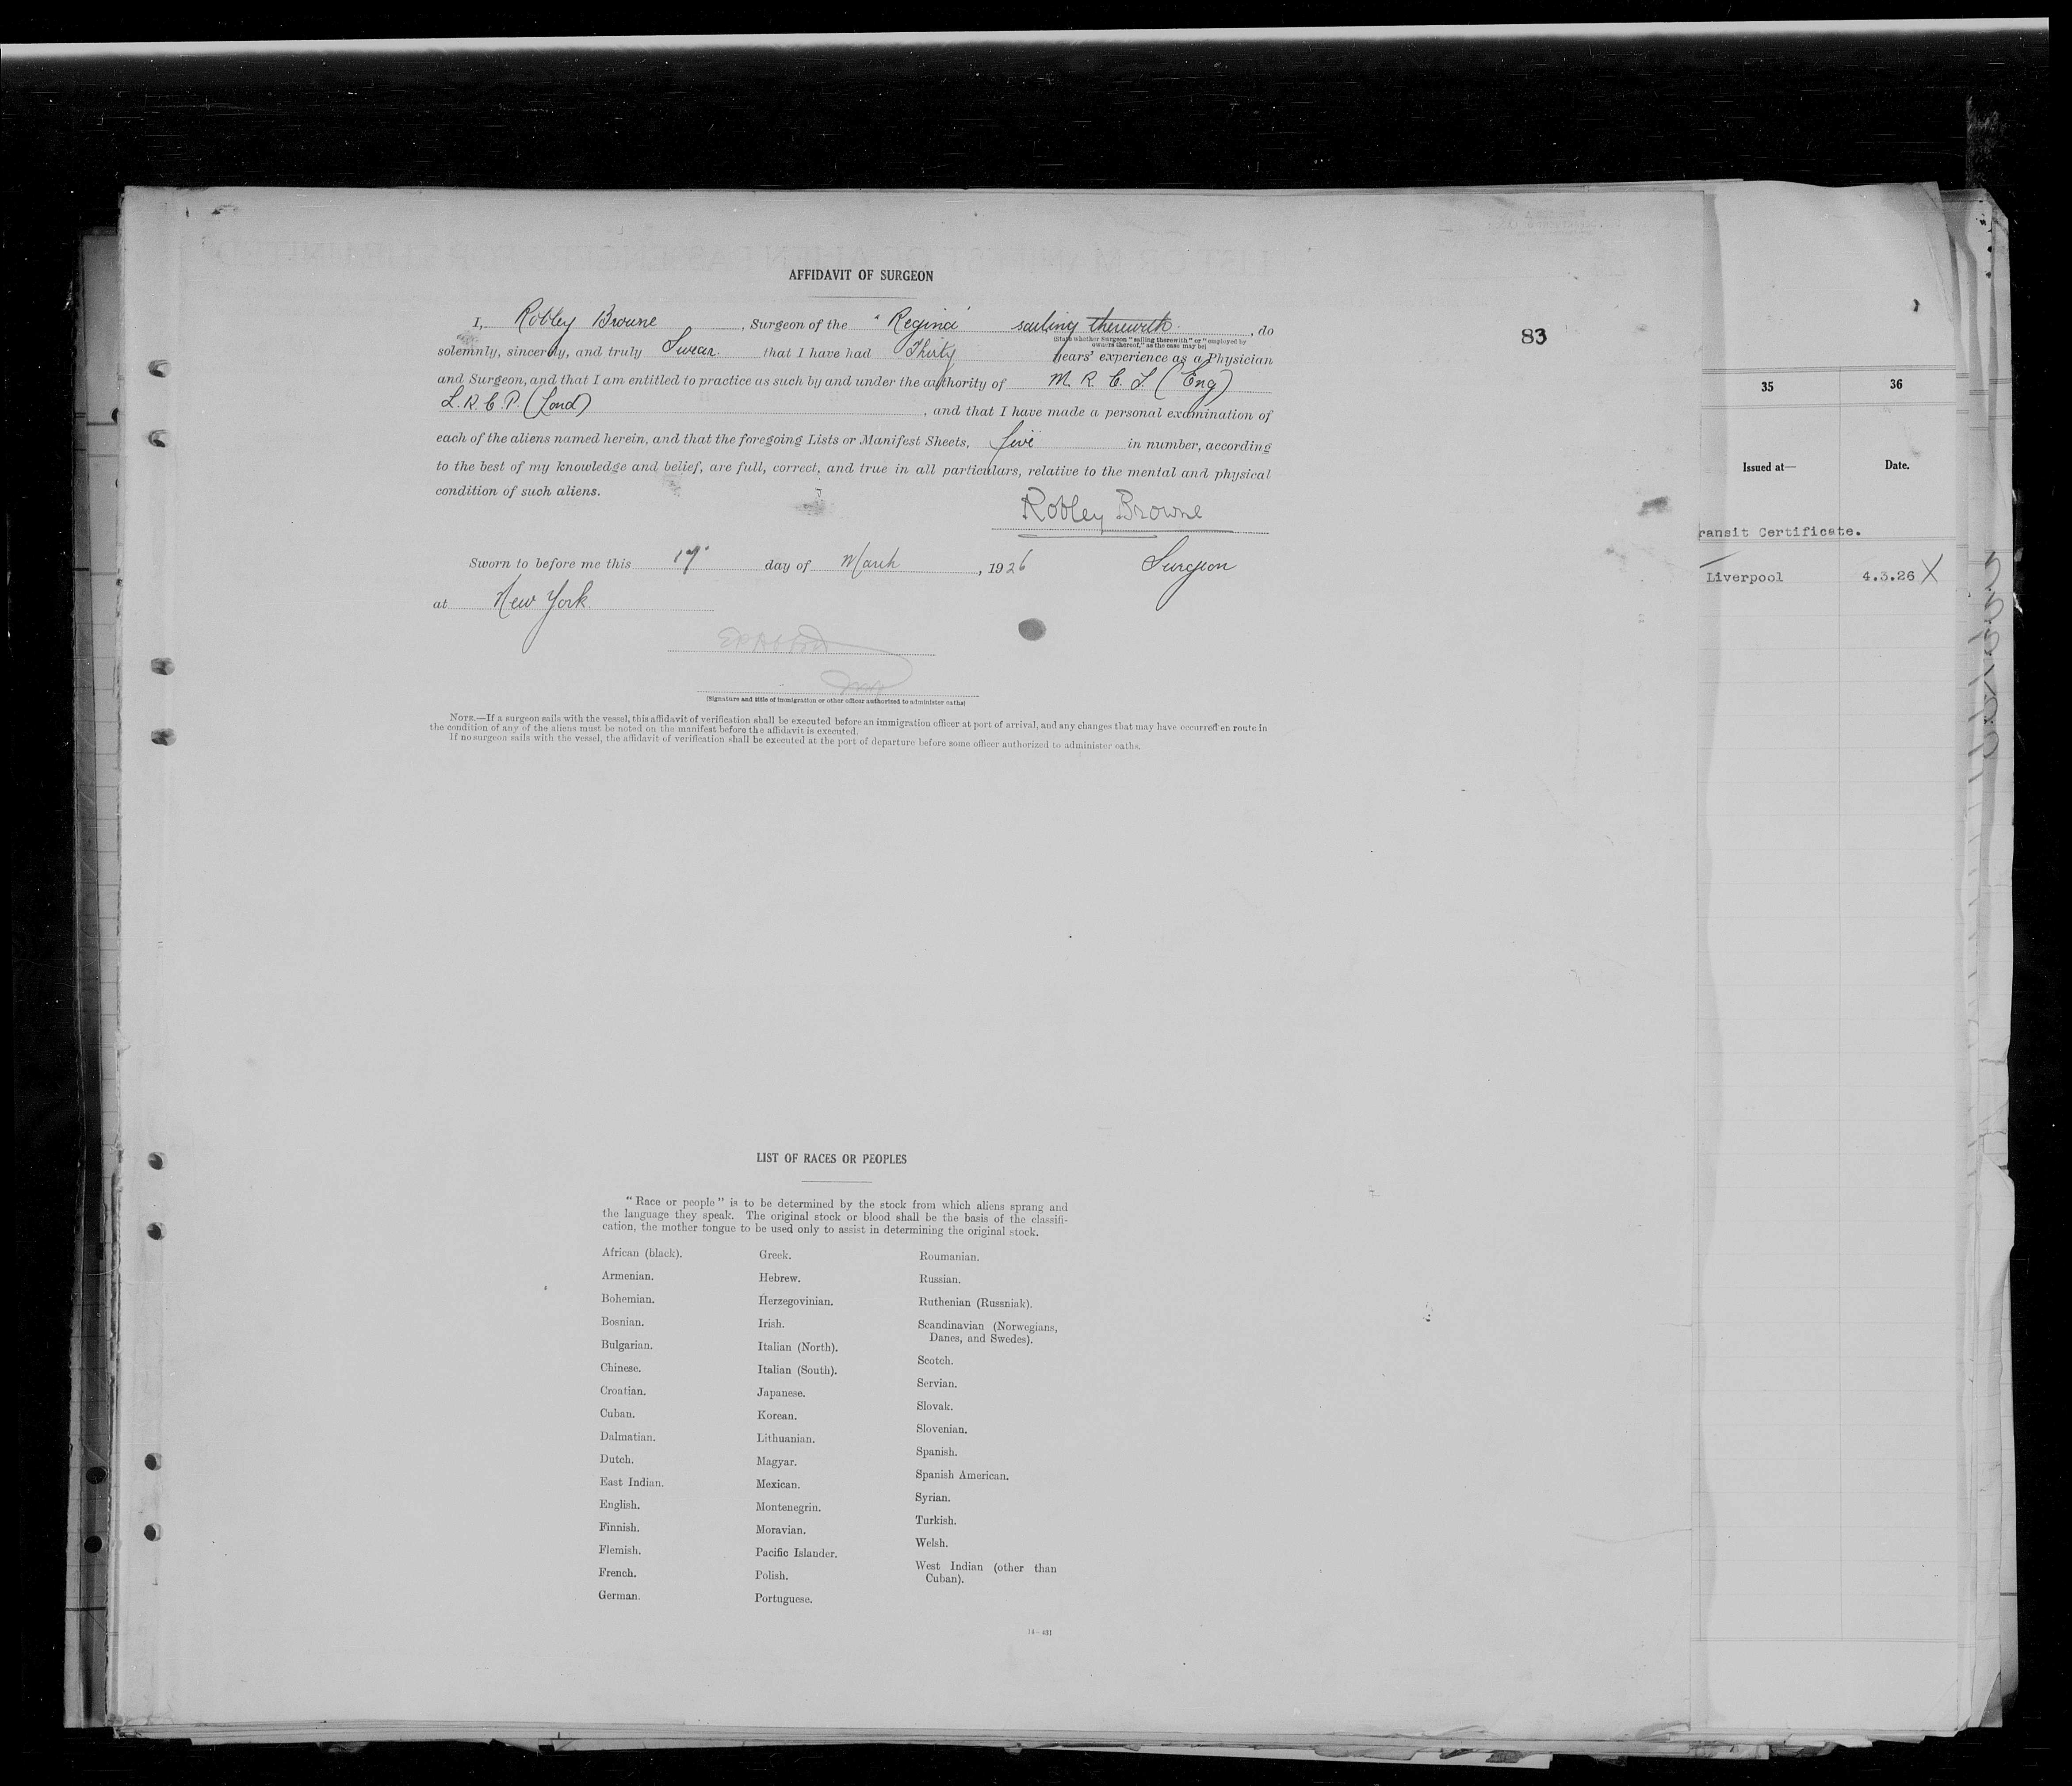 AFFIDAVIT OF SURGEON
I, Robley Browne, Surgeon of the "Regina" sailing therewith, do
(State whether Surgeon "sailing therewith" or "employed by
owners thereof," as the case may be)
83
solemnly, sincerely, and truly Swear that I have had Thirty years' experience as a Physician
and Surgeon, and that I am entitled to practice as such by and under the authority of M. R. C. S. (Eng)
L. R. C. P. (Lond), and that I have made a personal examination of
each of the aliens named herein, and that the foregoing Lists or Manifest Sheets, five in number, according
to the best of my knowledge and belief, are full, correct, and true in all particulars, relative to the mental and physical
condition of such aliens.
Robley Browne
Surgeon
Sworn to before me this 17 day of March, 1926
at New York.
(Signature and title of immigration or other officer authorized to administer oaths)
NOTE.—If a surgeon sails with the vessel, this affidavit of verification shall be executed before an immigration officer at port of arrival, and any changes that may have occurred en route in
the condition of any of the aliens must be noted on the manifest before the affidavit is executed.
If no surgeon sails with the vessel, the affidavit of verification shall be executed at the port of departure before some officer authorized to administer oaths.
LIST OF RACES OR PEOPLES
"Race or people" is to be determined by the stock from which aliens sprang and
the language they speak. The original stock or blood shall be the basis of the classifi-
cation, the mother tongue to be used only to assist in determining the original stock.
African (black).
Armenian.
Bohemian.
Bosnian.
Bulgarian.
Chinese.
Croatian.
Cuban.
Dalmatian.
Dutch.
East Indian.
English.
Finnish.
Flemish.
French.
German.
Greek.
Hebrew.
Herzegovinian.
Irish.
Italian (North).
Italian (South).
Japanese.
Korean.
Lithuanian.
Magyar.
Mexican.
Montenegrin.
Moravian.
Pacific Islander.
Polish.
Portuguese.
Roumanian.
Russian.
Ruthenian (Russniak).
Scandinavian (Norwegians,
Danes, and Swedes).
Scotch.
Servian.
Slovak.
Slovenian.
Spanish.
Spanish American.
Syrian.
Turkish.
Welsh.
West Indian (other than
Cuban).
14—431
35 36
Issued at— Date.
ransit Certificate.
Liverpool 4.3.26 X